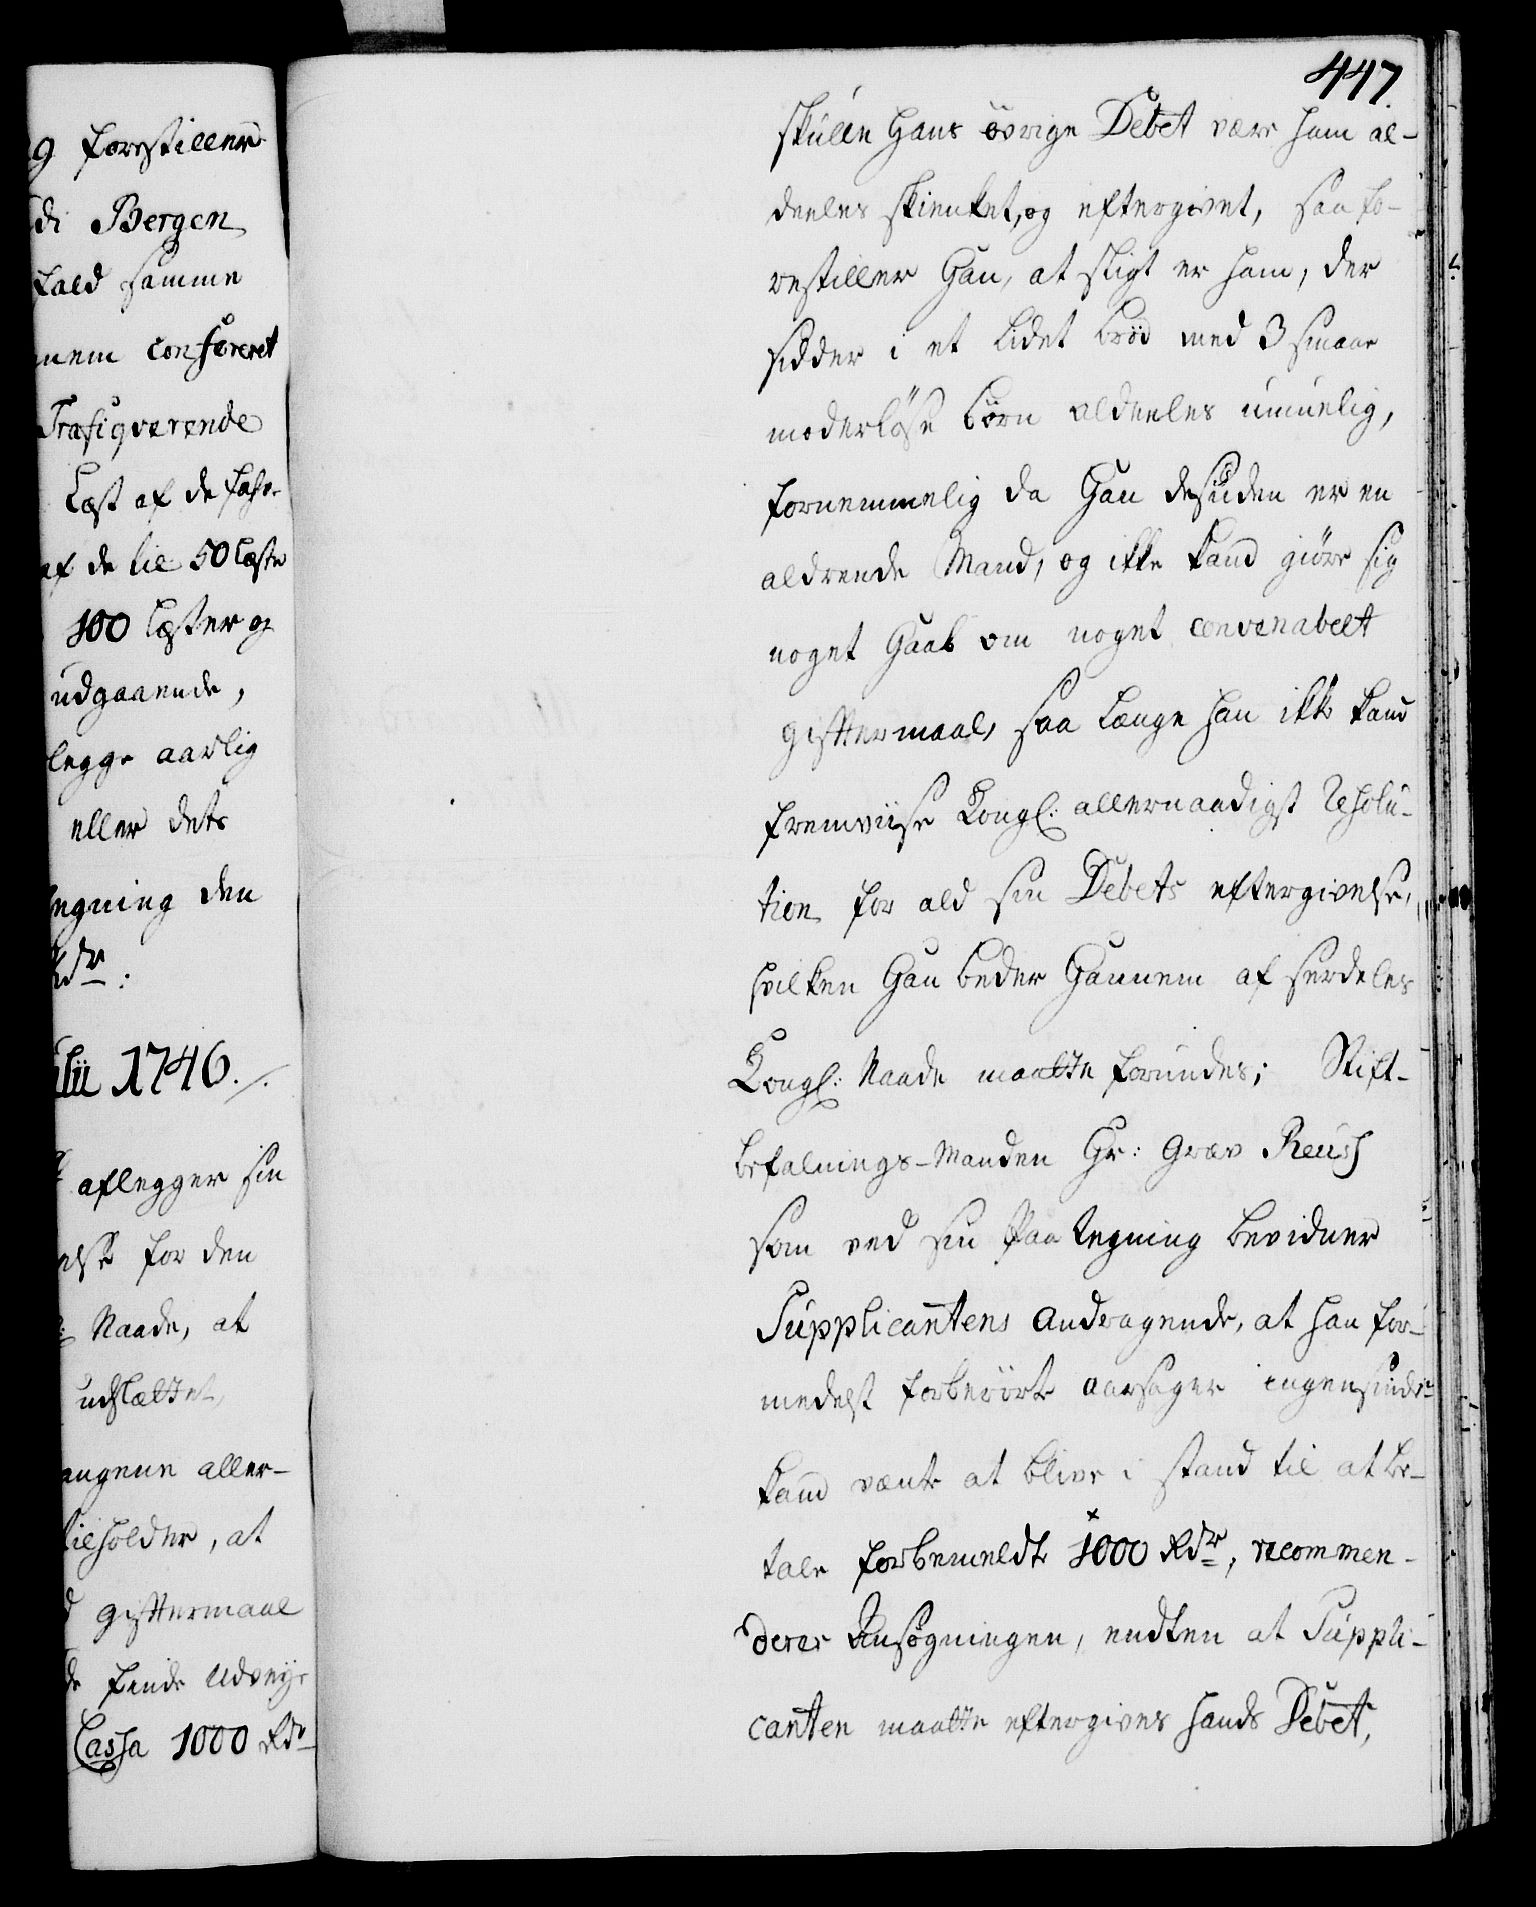 g forestiller
di Bergen
kald samme
nem confereret
Trafiqverende
Læst af de
af de til 50 Læste
100 Læster og
udgaaende,
legge aarlig
eller dets
egning den
Rdr:
ulii 1746./.
aflegger sin
else for den
Naade, at
udslættet,
angene aller-
tilholder, at
d gifttermaal
de finde Udveye
Cassa 1000 Rdr
447.
skulle Hans øvrige Debet være ham al-
deeles skienket, og eftergivet, saa fo-
restiller Han, at sligt er ham, der
sidder i et lidet brød med 3 smaae
moderløse børn aldeeles umuelig,
fornemmelig da Han desuden er en
aldrende Mand, og ikke kand giøre sig
noget Haab om noget convenabelt
gifttermaal, saa længe han ikke kand
fremviise Kongl: allernaadigst Resolu-
tion for ald sin Debets eftergivelse,
hvilken Han beder Hannem af serdeles
Kongl: Naade maatte forundes; Stift-
befalnings-Manden Hr: Grev Reuss
som ved sin Paategning bevidner
Supplicantens Andragende, at han for-
medelst forberørte Aarsager ingensinde
kand vænte at blive i stand til at be-
tale forbemeldte 1000 Rdr, recommen-
derer Ansøgningen, endten at Suppli-
canten maatte eftergives hands Debet,